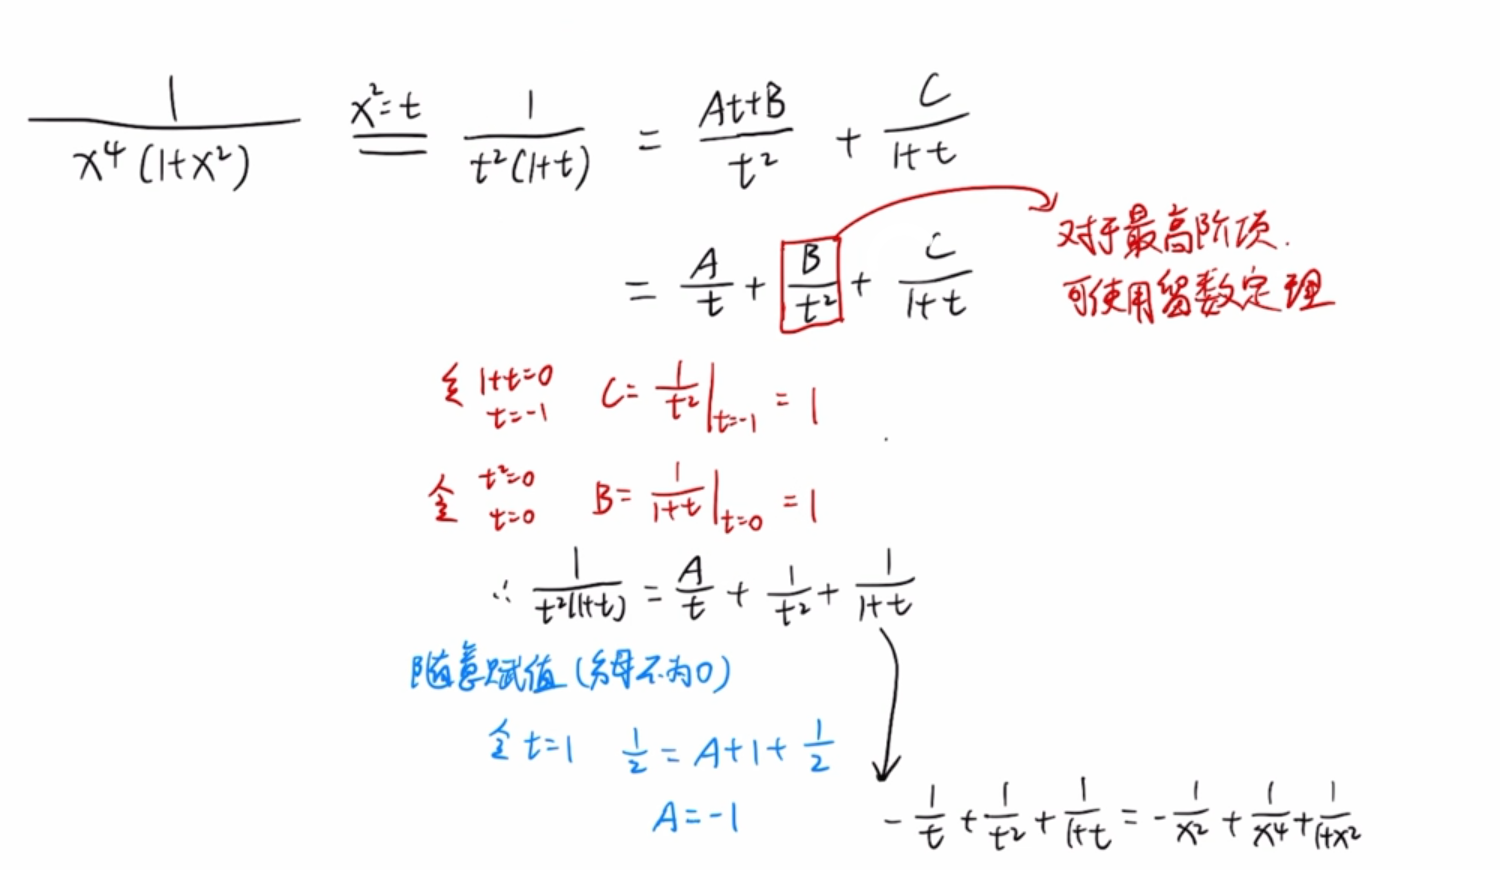 1/(x⁴(1+x²)) x²=t 1/(t²(1+t)) = (At+B)/t² + C/(1+t)
= A/t + B/t² + C/(1+t)
对于最高阶项.
可使用留数定理
令 1+t=0 t=-1 C= 1/t² |t=-1 = 1
令 t²=0 t=0 B= 1/(1+t) |t=0 = 1
∴ 1/(t²(1+t)) = A/t + 1/t² + 1/(1+t)
随意赋值(分母不为0)
令 t=1 1/2 = A+1+ 1/2
A=-1
- 1/t + 1/t² + 1/(1+t) = - 1/x² + 1/x⁴ + 1/(1+x²)